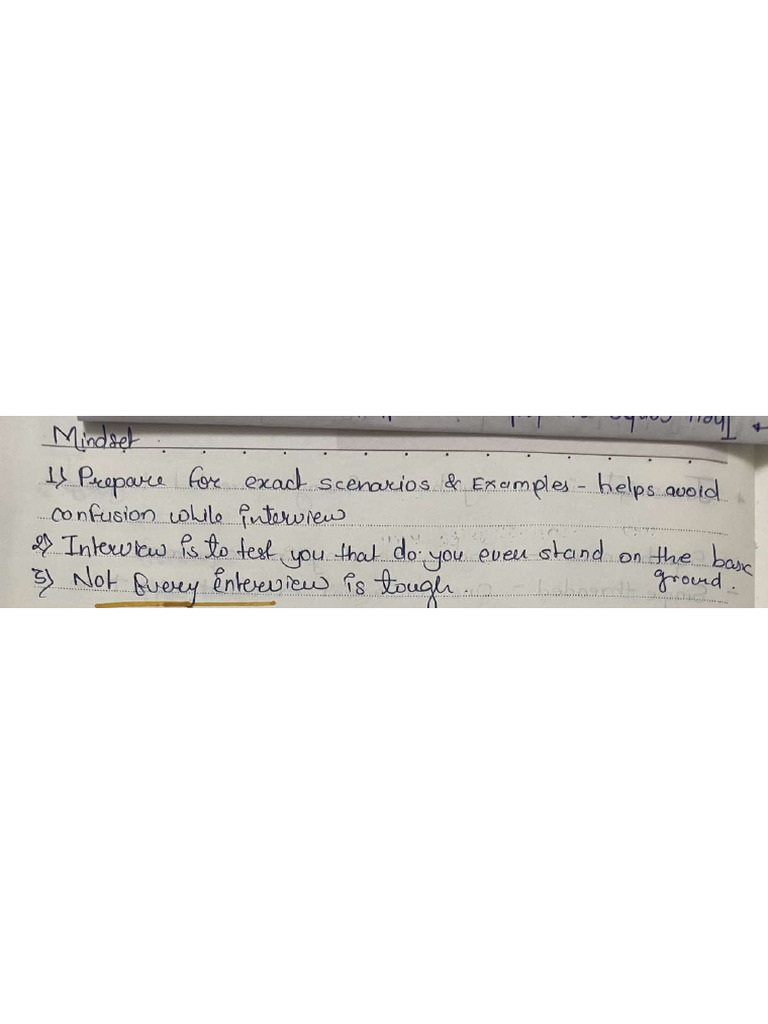 Mindset
1) Prepare for exact scenarios & Examples - helps avoid
confusion while interview
2) Interview is to test you that do you even stand on the basic
ground.
3) Not Every interview is tough.